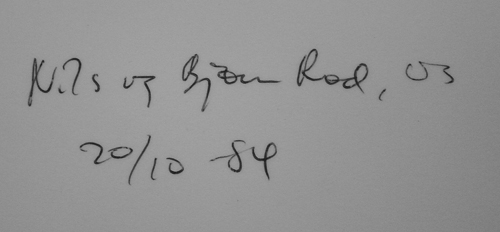 Nils og Bjørn Rød, 03
20/10 -84